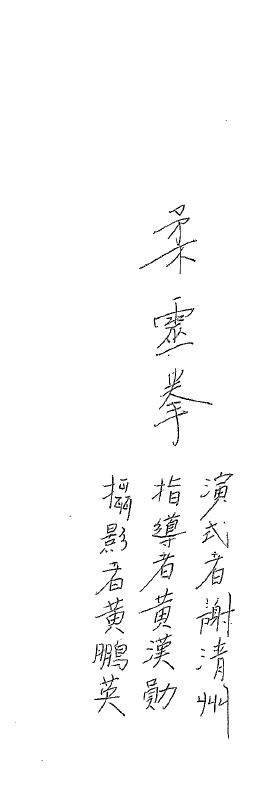 柔靈拳
演式者謝清州
指導者黃漢勛
攝影者黃鵬英